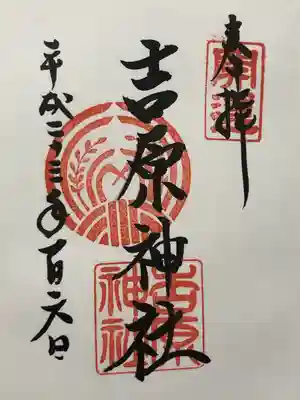 奉拝
吉原神社
平成二十三年一月六日
吉原神社